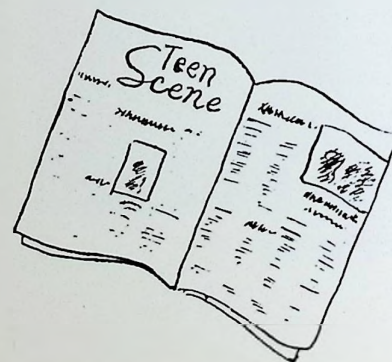 Teen
Scene